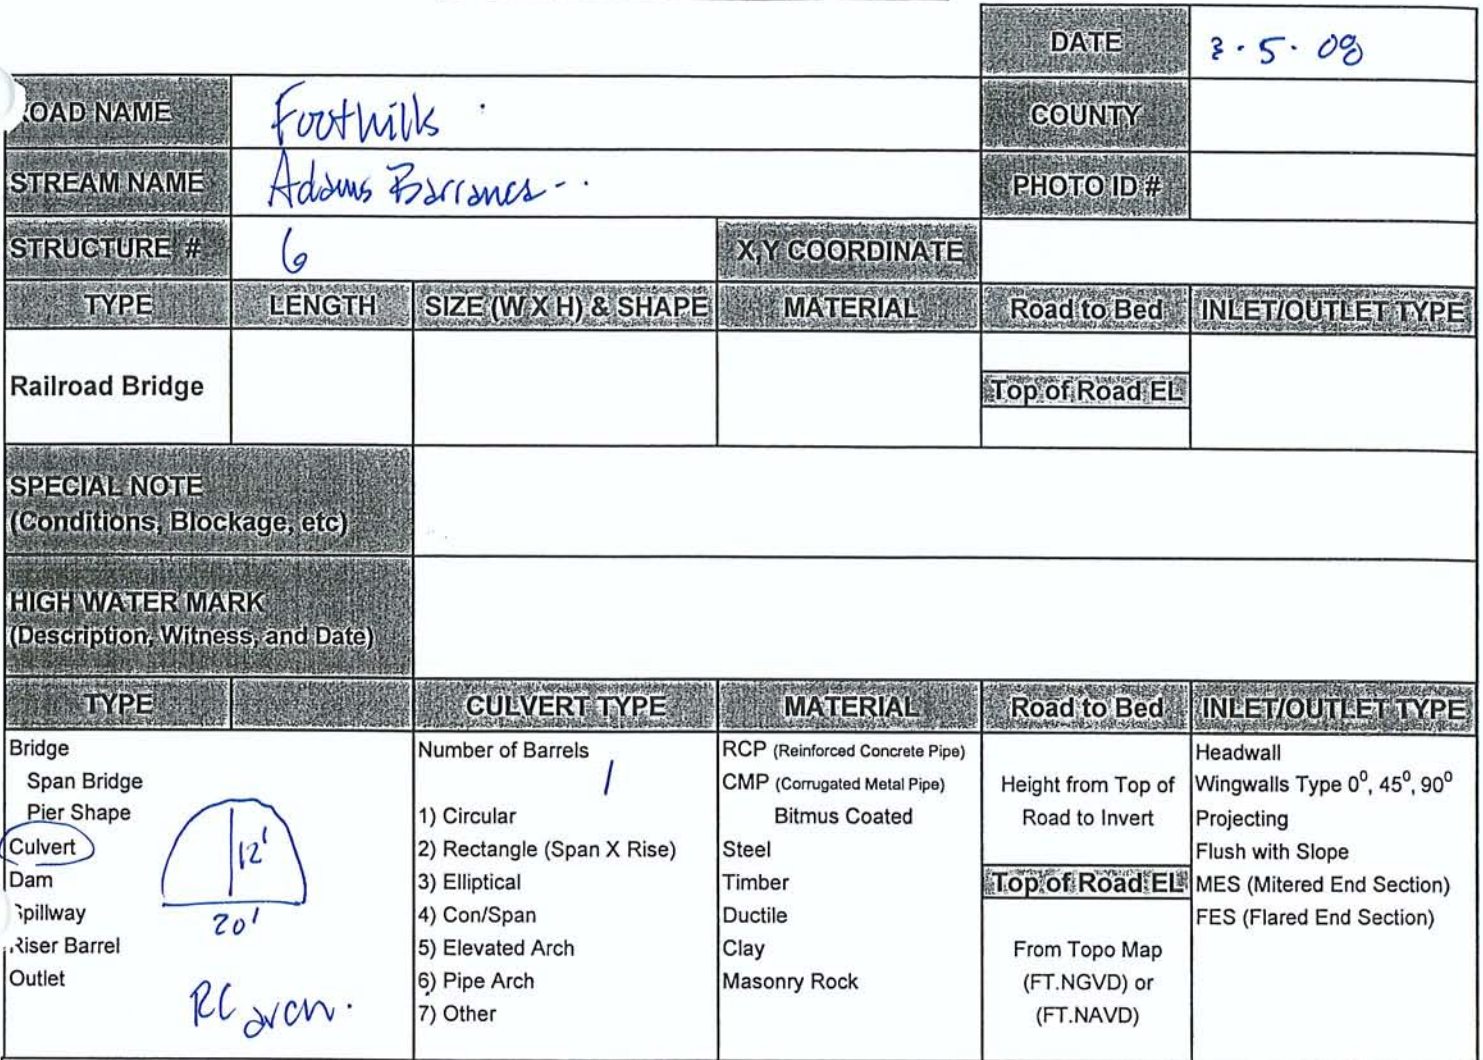 DATE 3·5·08
ROAD NAME Foothills COUNTY
STREAM NAME Adams Barranca PHOTO ID #
STRUCTURE # 6 X,Y COORDINATE
TYPE LENGTH SIZE (W X H) & SHAPE MATERIAL Road to Bed INLET/OUTLET TYPE
Railroad Bridge Top of Road EL
SPECIAL NOTE
(Conditions, Blockage, etc)
HIGH WATER MARK
(Description, Witness, and Date)
TYPE CULVERT TYPE MATERIAL Road to Bed INLET/OUTLET TYPE
Bridge
Span Bridge
Pier Shape
Culvert
Dam
Spillway
Riser Barrel
Outlet
12'
20'
RC arch.
Number of Barrels
1
1) Circular
2) Rectangle (Span X Rise)
3) Elliptical
4) Con/Span
5) Elevated Arch
6) Pipe Arch
7) Other
RCP (Reinforced Concrete Pipe)
CMP (Corrugated Metal Pipe)
Bitmus Coated
Steel
Timber
Ductile
Clay
Masonry Rock
Height from Top of
Road to Invert
Top of Road EL
From Topo Map
(FT.NGVD) or
(FT.NAVD)
Headwall
Wingwalls Type 0⁰, 45⁰, 90⁰
Projecting
Flush with Slope
MES (Mitered End Section)
FES (Flared End Section)